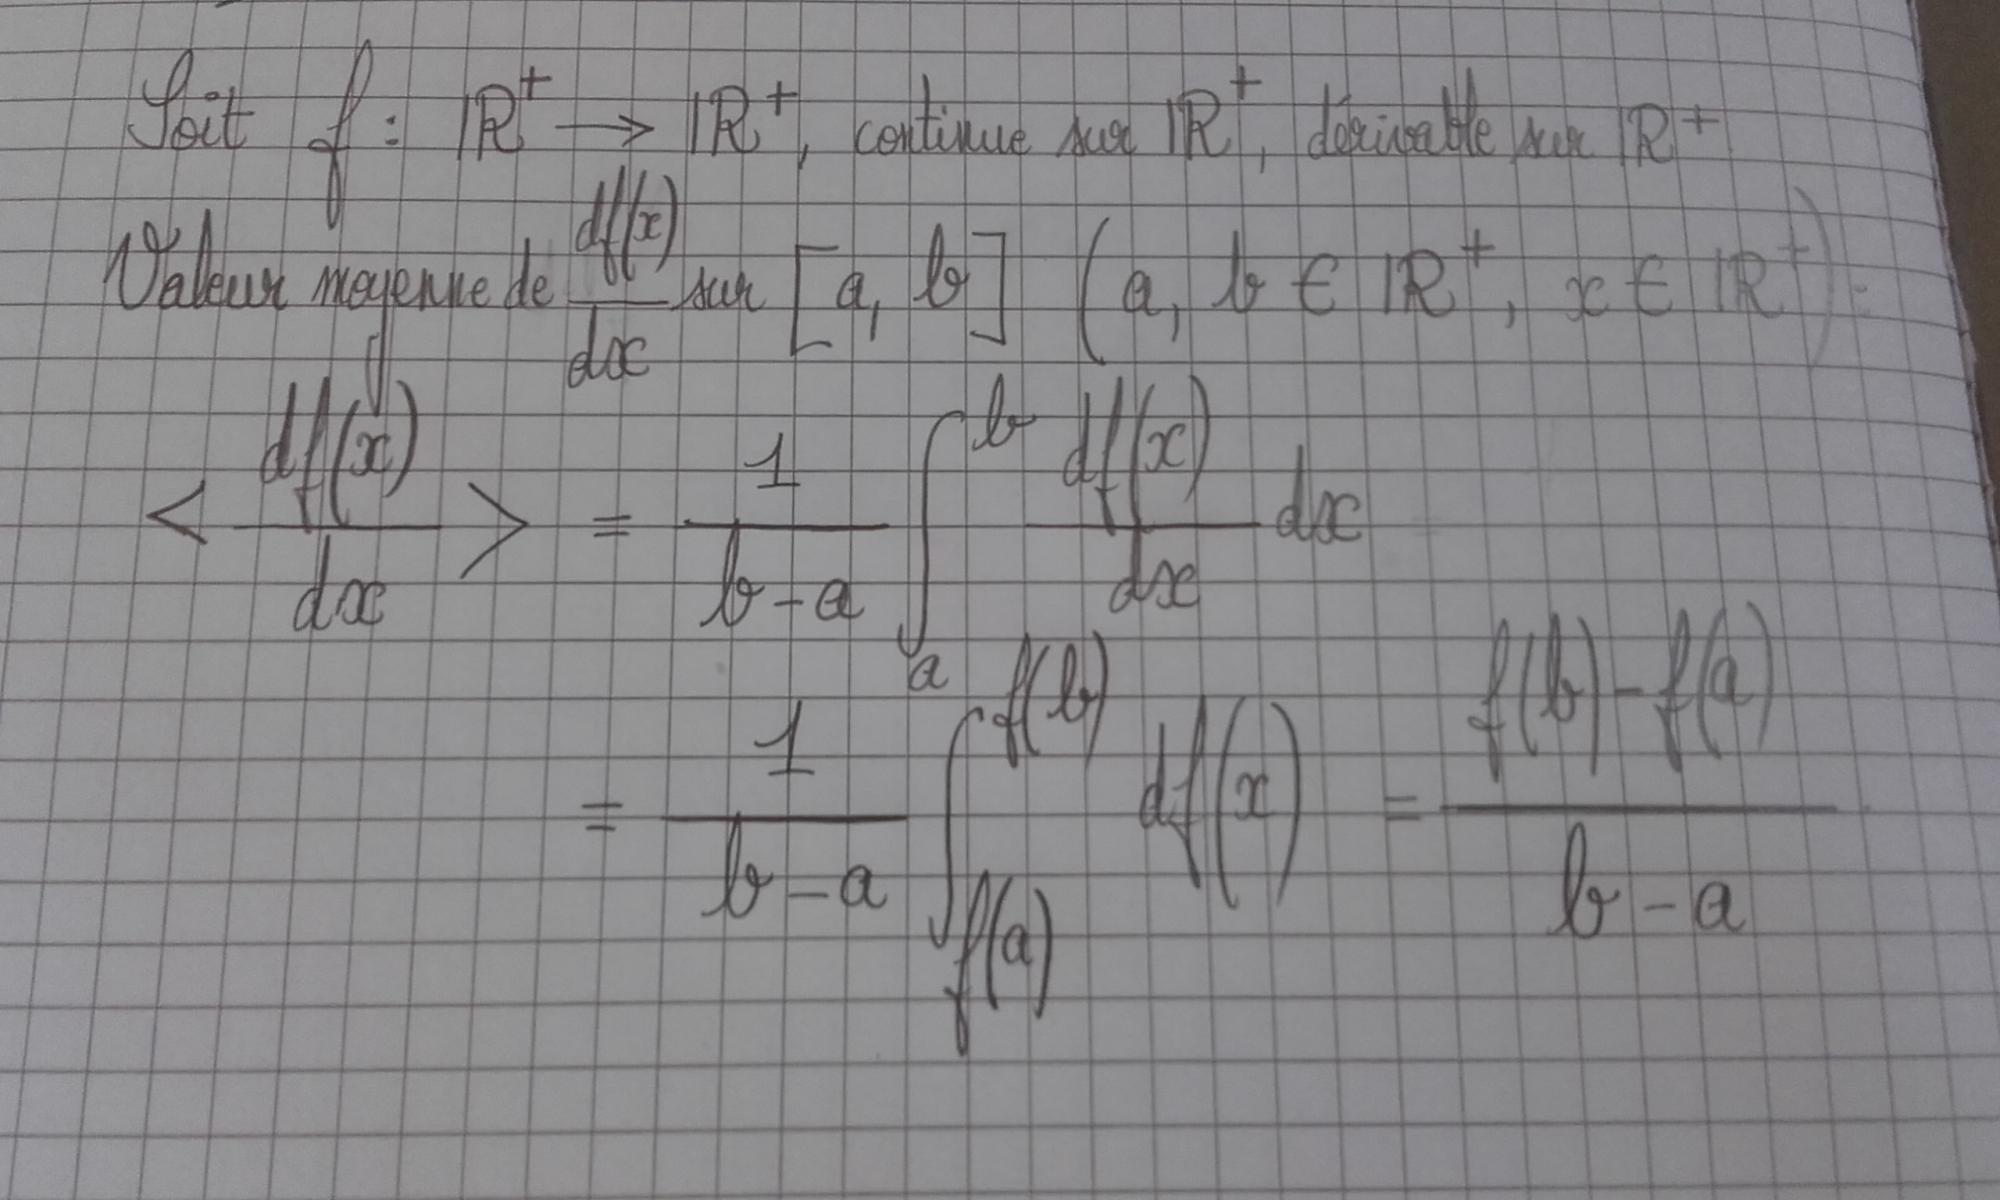 Soit f : ℝ⁺ → ℝ⁺, continue sur ℝ⁺, dérivable sur ℝ⁺
Valeur moyenne de df(x)/dx sur [a, b] (a, b ∈ ℝ⁺, x ∈ ℝ⁺) :
< df(x)/dx > = 1/(b-a) ∫_a^b df(x)/dx dx
= 1/(b-a) ∫_{f(a)}^{f(b)} df(x) = (f(b)-f(a))/(b-a)